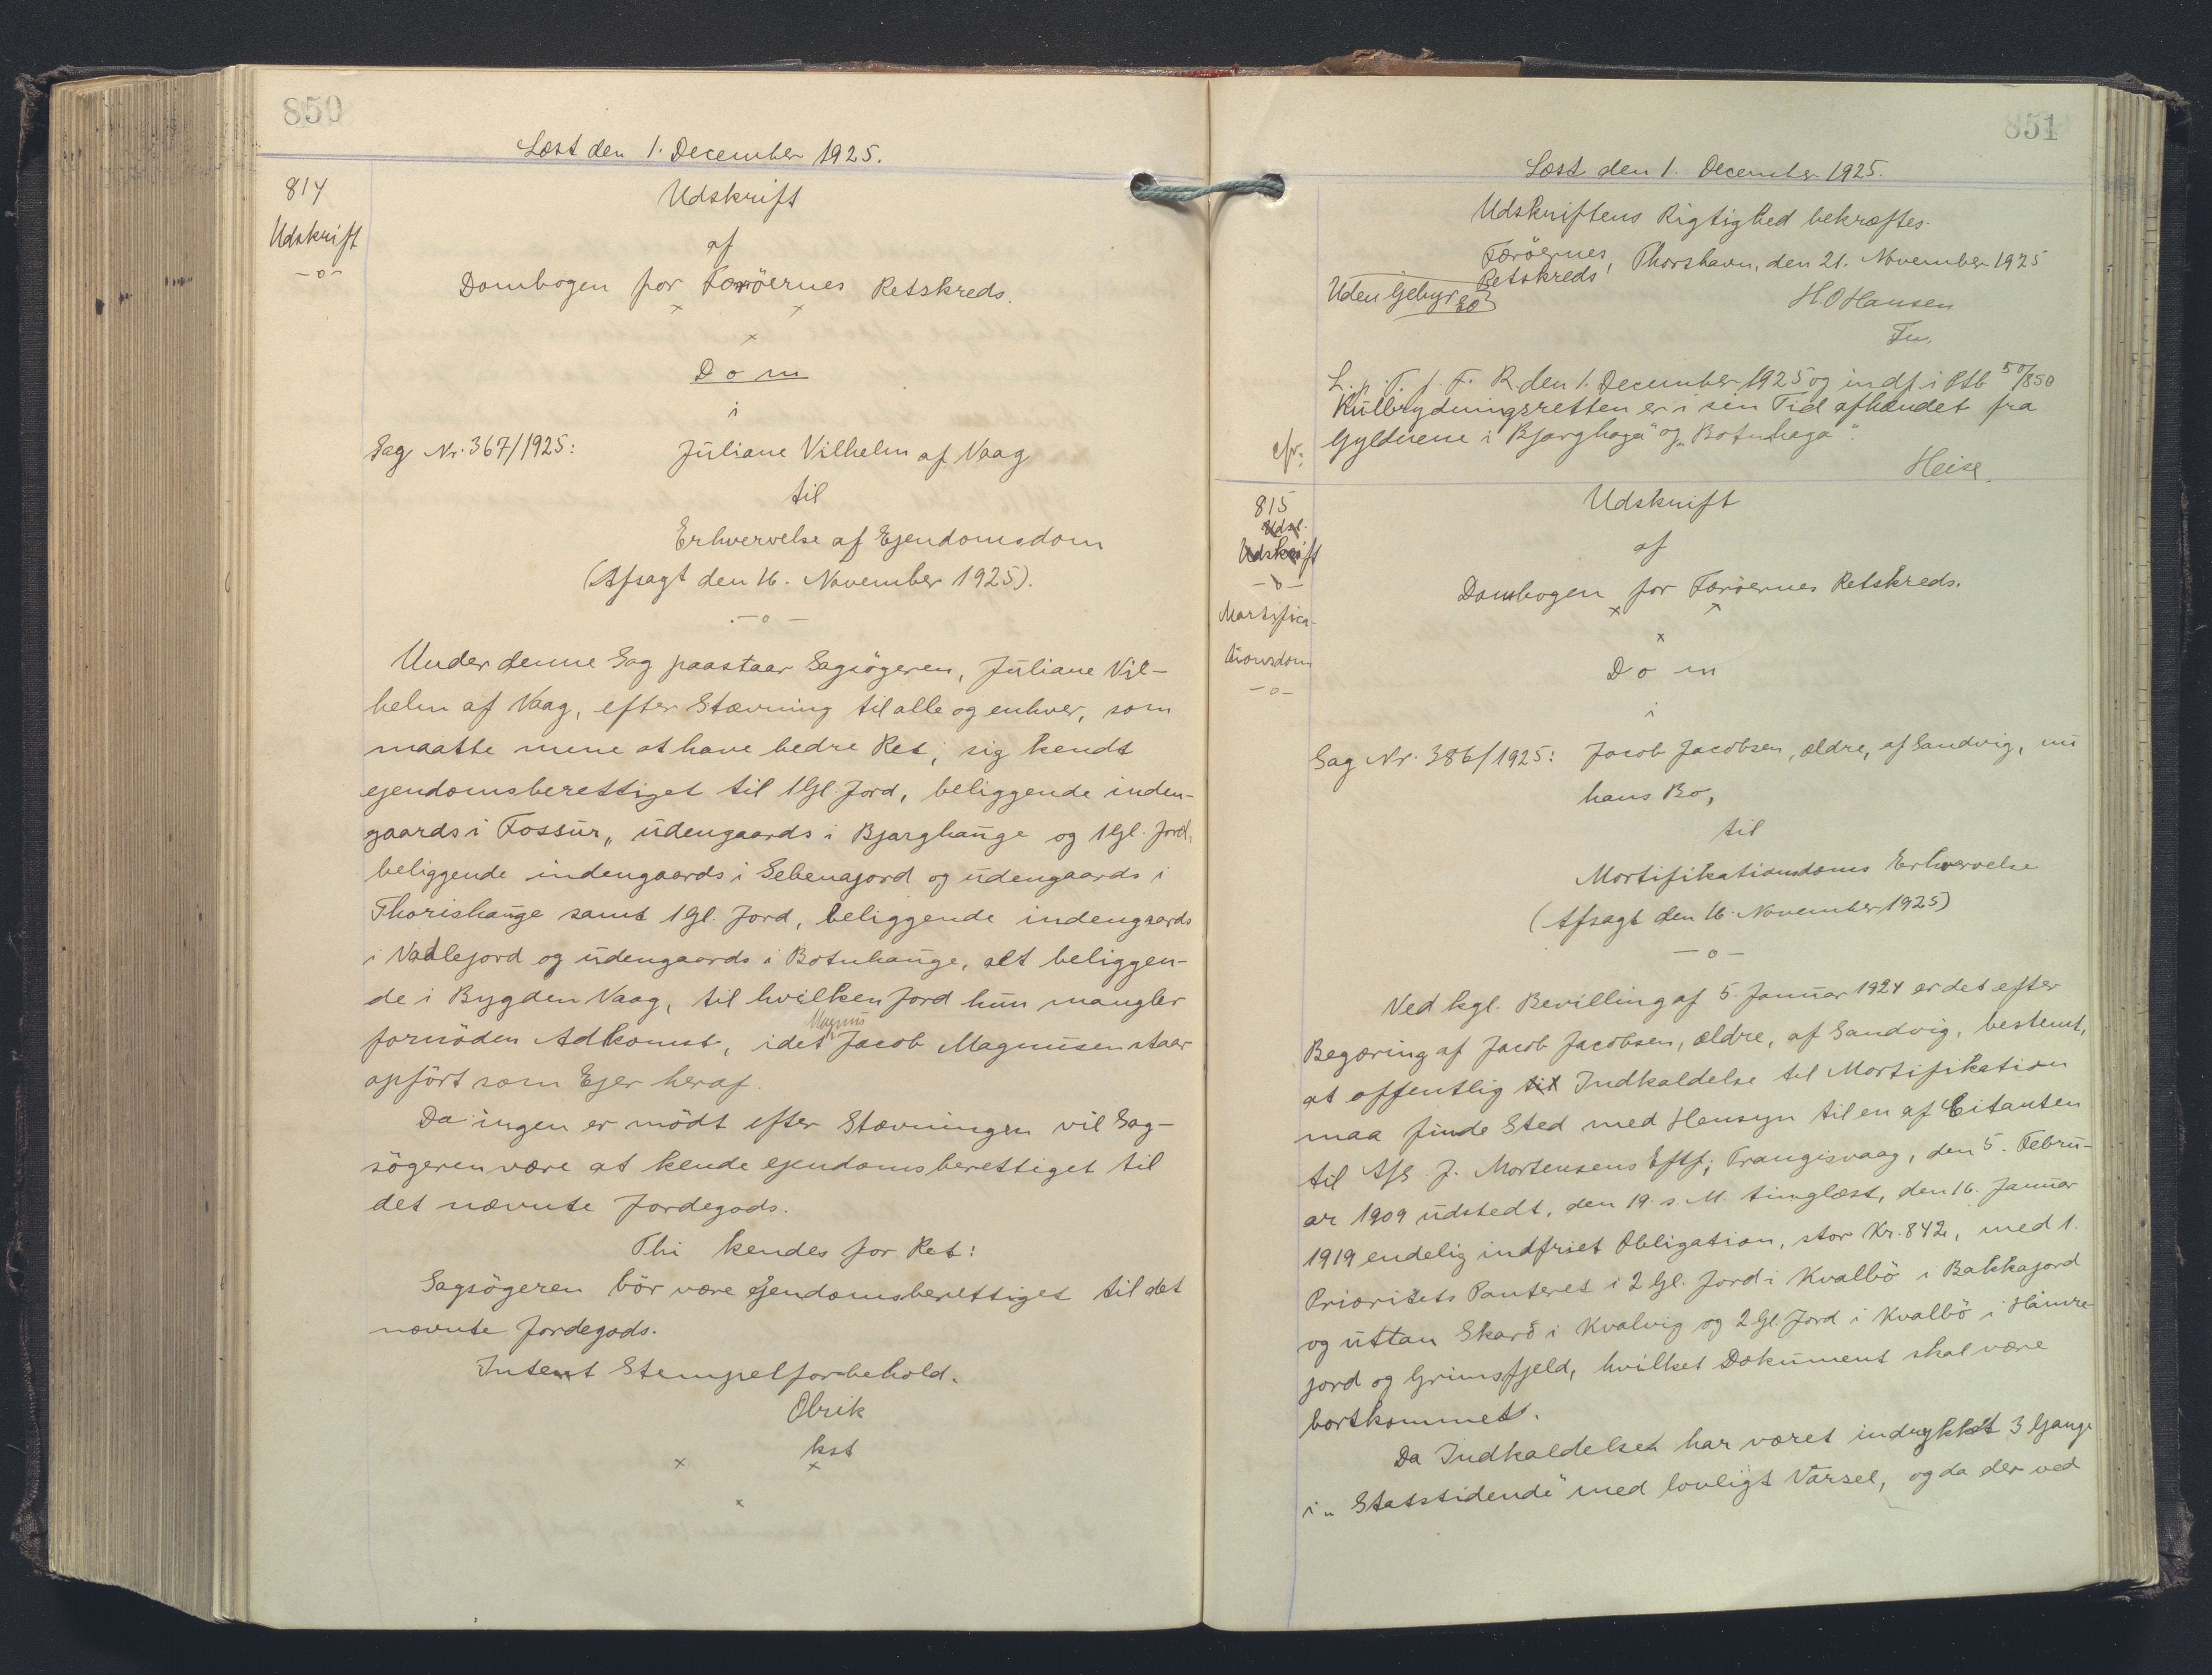 850
Læst den 1. December 1925.
814
Udskrift
-o-
Udskrift
af
Dombogen for Færöernes Retskreds.
x x
x
Dom
i
Sag Nr. 367/1925: Juliane Vilhelm af Vaag
til
Erhvervelse af Ejendomsdom
(Afsagt den 16. November 1925).
-o-
Under denne Sag paastaar Sagsögeren, Juliane Vil-
helm af Vaag, efter Stævning til alle og enhver, som
maatte mene at have bedre Ret, sig kendt
ejendomsberettiget til 1 Gl. Jord, beliggende inden-
gaards i Fossur, udengaards i Bjarghauge og 1 Gl. Jord,
beliggende indengaards i Sebenajord og udengaards i
Thorishauge samt 1 Gl. Jord, beliggende indengaards
i Vadlejord og udengaards i Botnhauge, alt beliggen-
de i Bygden Vaag, til hvilken Jord hun mangler
fornöden Adkomst, idet Magnus Jacob Magnusen staar
opfört som Ejer heraf.
Da ingen er mödt efter Stævningen vil Sag-
sögeren være at kende ejendomsberettiget til
det nævnte Jordegods.
Thi kendes for Ret:
Sagsögeren bör være ejendomsberettiget til det
nævnte Jordegods.
Intet Stempelforbehold.
Obrik
kst
x x
x
851
Læst den 1. December 1925.
Udskriftens Rigtighed bekræftes.
Færöernes Retskreds, Thorshavn, den 21. November 1925
Uden Gebyr
H.O Hansen
Fm.
L. p. T. f. F. R. den 1. December 1925 og indf. i Ptb 50/850
Kulbrydningsretten er i sin Tid afhændet fra
cfr: Gyldnene i "Bjarghaga" og "Botnhaga".
Heise.
815
Udsk.
Udskrift
-o-
Mortifica-
tionsdom
-o-
Udskrift
af
Dombogen for Færöernes Retskreds.
x x
x
Dom
i
Sag Nr. 386/1925: Jacob Jacobsen, ældre, af Sandvig, nu
hans Bo,
til
Mortifikationsdoms Erhvervelse
(Afsagt den 16. November 1925)
-o-
Ved kgl. Bevilling af 5. Januar 1924 er det efter
Begæring af Jacob Jacobsen, ældre, af Sandvig, bestemt,
at offentlig til Indkaldelse til Mortifikation
maa finde Sted med Hensyn til en af Citanten
til A/S J. Mortensens Eftf., Trangisvaag, den 5. Febru-
ar 1909 udstedt, den 19. s. M. tinglæst, den 16. Januar
1919 endelig indfriet Obligation, stor Kr. 842, med 1.
Prioritets Panteret i 2 Gl. Jord i Kvalbö i Bakkajord
og uttan Skarð i Kvalvig og 2 Gl. Jord i Kvalbö i Hamre-
jord og Grimsfjeld, hvilket Dokument skal være
bortkommet.
Da Indkaldelsen har været indrykket 3 Gange
i "Statstidende" med lovligt Varsel, og da der ved